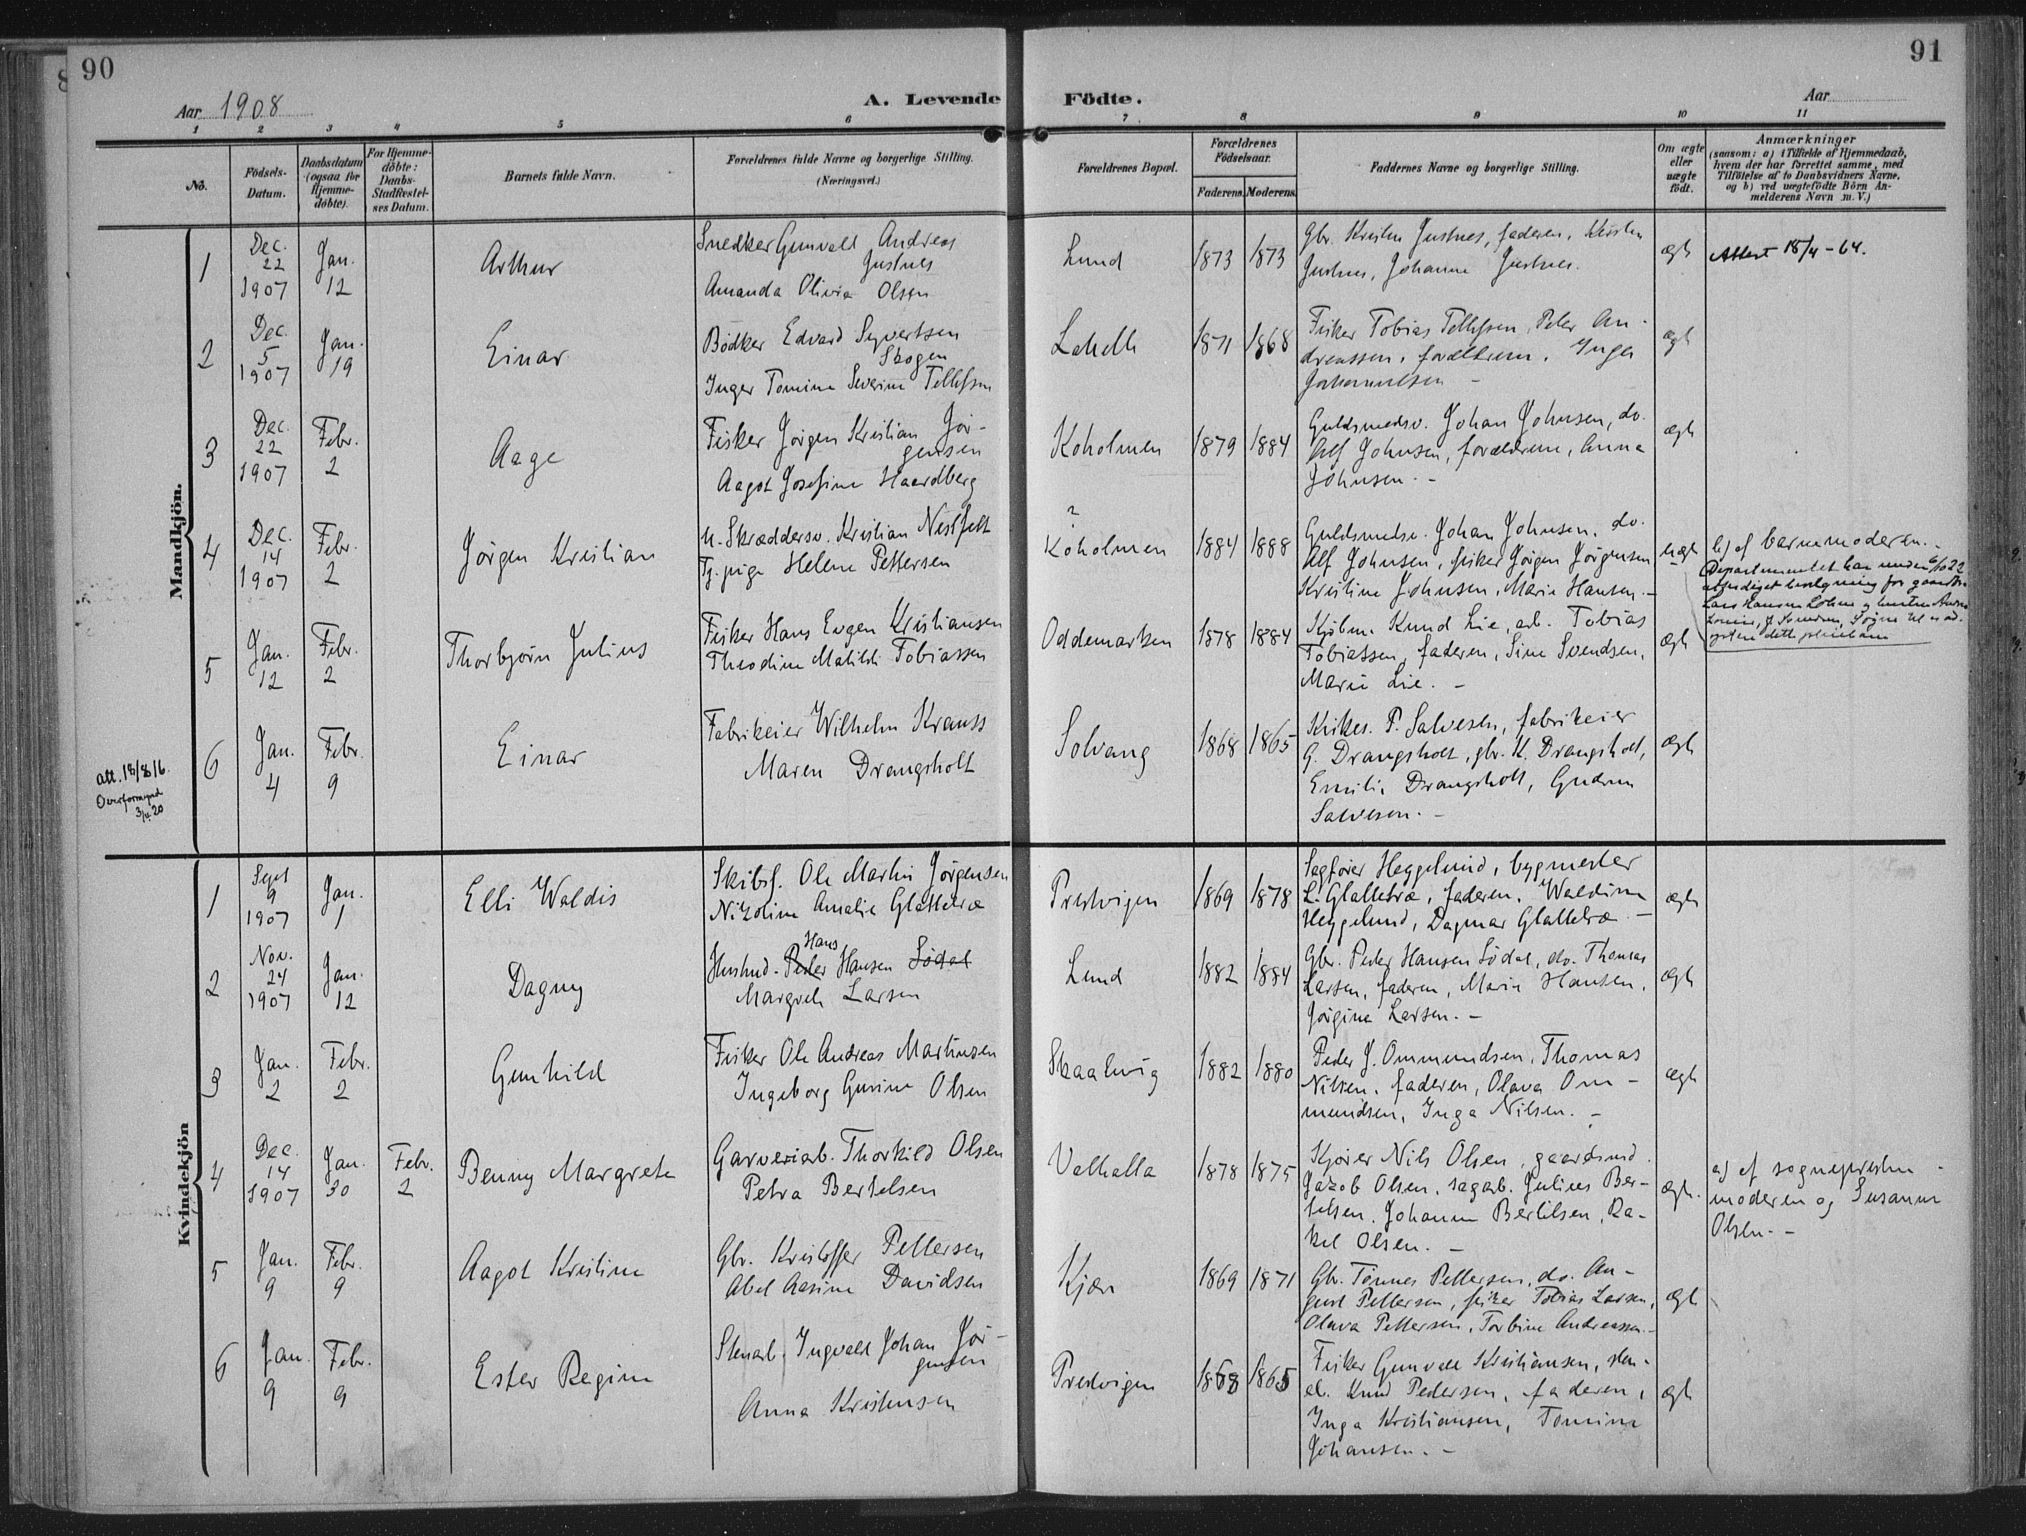 90
91
Aar 1908
A. Levende Födte.
Aar
1 2 3 4 5 6 7 8 9 10 11
No.
Födsels-Datum.
Daabsdatum (ogsaa for Hjemme-döbte).
For Hjemme-döbte: Daabs-Stadfæstel-ses Datum.
Barnets fulde Navn.
Forældrenes fulde Navne og borgerlige Stilling. (Næringsvei.)
Forældrenes Bopæl.
Forældrenes Födselsaar.
Faderens. Moderens.
Faddernes Navne og borgerlige Stilling.
Om ægte eller uægte født.
Anmærkninger
(saasom: a) i Tilfælde af Hjemmedaab, hvem der har forrettet samme, med Tilföielse af to Daabsvidners Navne, og b) ved uægtefödte Börn An-melderens Navn m. V.)
Mandkjön.
1
Dec. 22 1907
Jan. 12
Arthur
Snedker Gunvald Andreas
Justnes
Amanda Olivia Olsen
Lund
1873 1873
Gbr. Kristen Justnes, faderen, Kirsten
Justnes, Johanne Justnes.
ægte
Attest 18/4-64.
2
Dec. 5 1907
Jan. 19
Einar
Bødker Edvard Syvertsen
Skogen
Inger Tomine Severine Tellefsen
1871 1868
Fisker Tobias Tellefsen, Peter An-
dreassen, forældrene, Inga
Johannesen -
ægte
3
Dec. 22 1907
Febr. 2
Aage
Fisker Jørgen Kristian Jør-
gensen
Aagot Josefine Haardberg
Koholmen
1879 1884
Guldsmedsv. Johan Johnsen, do.
Alf Johnsen, forældrene, Anna
Johnsen. -
ægte
4
Dec. 14 1907
Febr. 2
Jørgen Kristian
u. Skræddersv. Kristian Nesfelt
Tj. pige Helene Pettersen
?
Koholmen
1884 1888
Guldsmedsv. Johan Johnsen, do.
Alf Johnsen, fisker Jørgen Jørgensen
Kristine Johnsen, Marie Hansen. -
uægte
b) af barnemoderen. -
Departementet har under 6/10 22
Lars Hansen
5
Jan. 12
Febr. 2
Thorbjørn Julius
Fisker Hans Eugen Kristiansen
Theodine Matilde Tobiassen
Oddemarken
1878 1884
Kjøbm. Knud Lie, arb. Tobias
Tobiassen, faderen, Sine Svendsen,
Marie Lie. -
ægte
6
Jan. 4
Febr. 9
Einar
Fabrikeier Wilhelm Krauss
Maren Drangsholt
Solvang
1868 1865
Kirkes. P. Salvesen, fabrikeier
G. Drangsholt, gbr. K. Drangsholt,
Emilie Drangsholt, Gudrun
Salvesen. -
ægte
att. 18/8 16.
Overformynd
3/4 20
Kvindekjön
1
Sept 9 1907
Jan. 1
Elli Waldis
Skibsf. Ole Martin Jørgensen
Nikoline Amalie Glattetræ
Prestvigen
1869 1878
Sagfører Heggelund, bygmester
L. Glattetræ, faderen, Waldine
Heggelund, Dagmar Glattetræ. -
ægte
2
Nov. 24 1907
Jan. 12
Dagny
Hans
Husmd. Peder Hansen Sødal
Margrete Larsen
Lund
1882 1884
Gbr. Peder Hansen Sødal, do. Thomas
Larsen, faderen, Marie Hansen,
Jørgine Larsen. -
ægte
3
Jan. 2
Febr. 2
Gunhild
Fisker Ole Andreas Martinsen
Ingeborg Gurine Olsen
Skaalevig
1882 1880
Peder J. Ommundsen, Thomas
Nilsen, faderen, Olava Om-
mundsen, Inga Nilsen. -
ægte
4
Dec. 14 1907
Jan. 30
Febr. 2
Benny Margrete
Garveriarb. Thorkild Olsen
Petra Bertelsen
Valhalla
1878 1875
Kjører Nils Olsen, gaardsmd.
Jacob Olsen, sagarb. Julius Ber-
telsen, Johanne Bertelsen, Ra-
kel Olsen. -
ægte.
a) af sognepresten -
moderen og Susanne
Olsen. -
5
Jan. 9
Febr. 9
Aagot Kristine
Gbr. Kristoffer Pettersen
Abel Aasine Davidsen
Kjær
1869 1871
Gbr. Tønnes Pettersen, do. Au-
gust Pettersen, fisker Tobias Larsen,
Olava Pettersen, Torbine Andreassen. -
ægte
6
Jan. 9
Febr. 9
Ester Regine
Stenarb. Ingvald Johan Jør-
gensen
Anna Kristensen
Prestvigen
1868 1865
Fisker Gunvald Kristiansen, sten-
arb. Knud Pedersen, faderen,
Inga Kristiansen, Tomine
Johansen. -
ægte